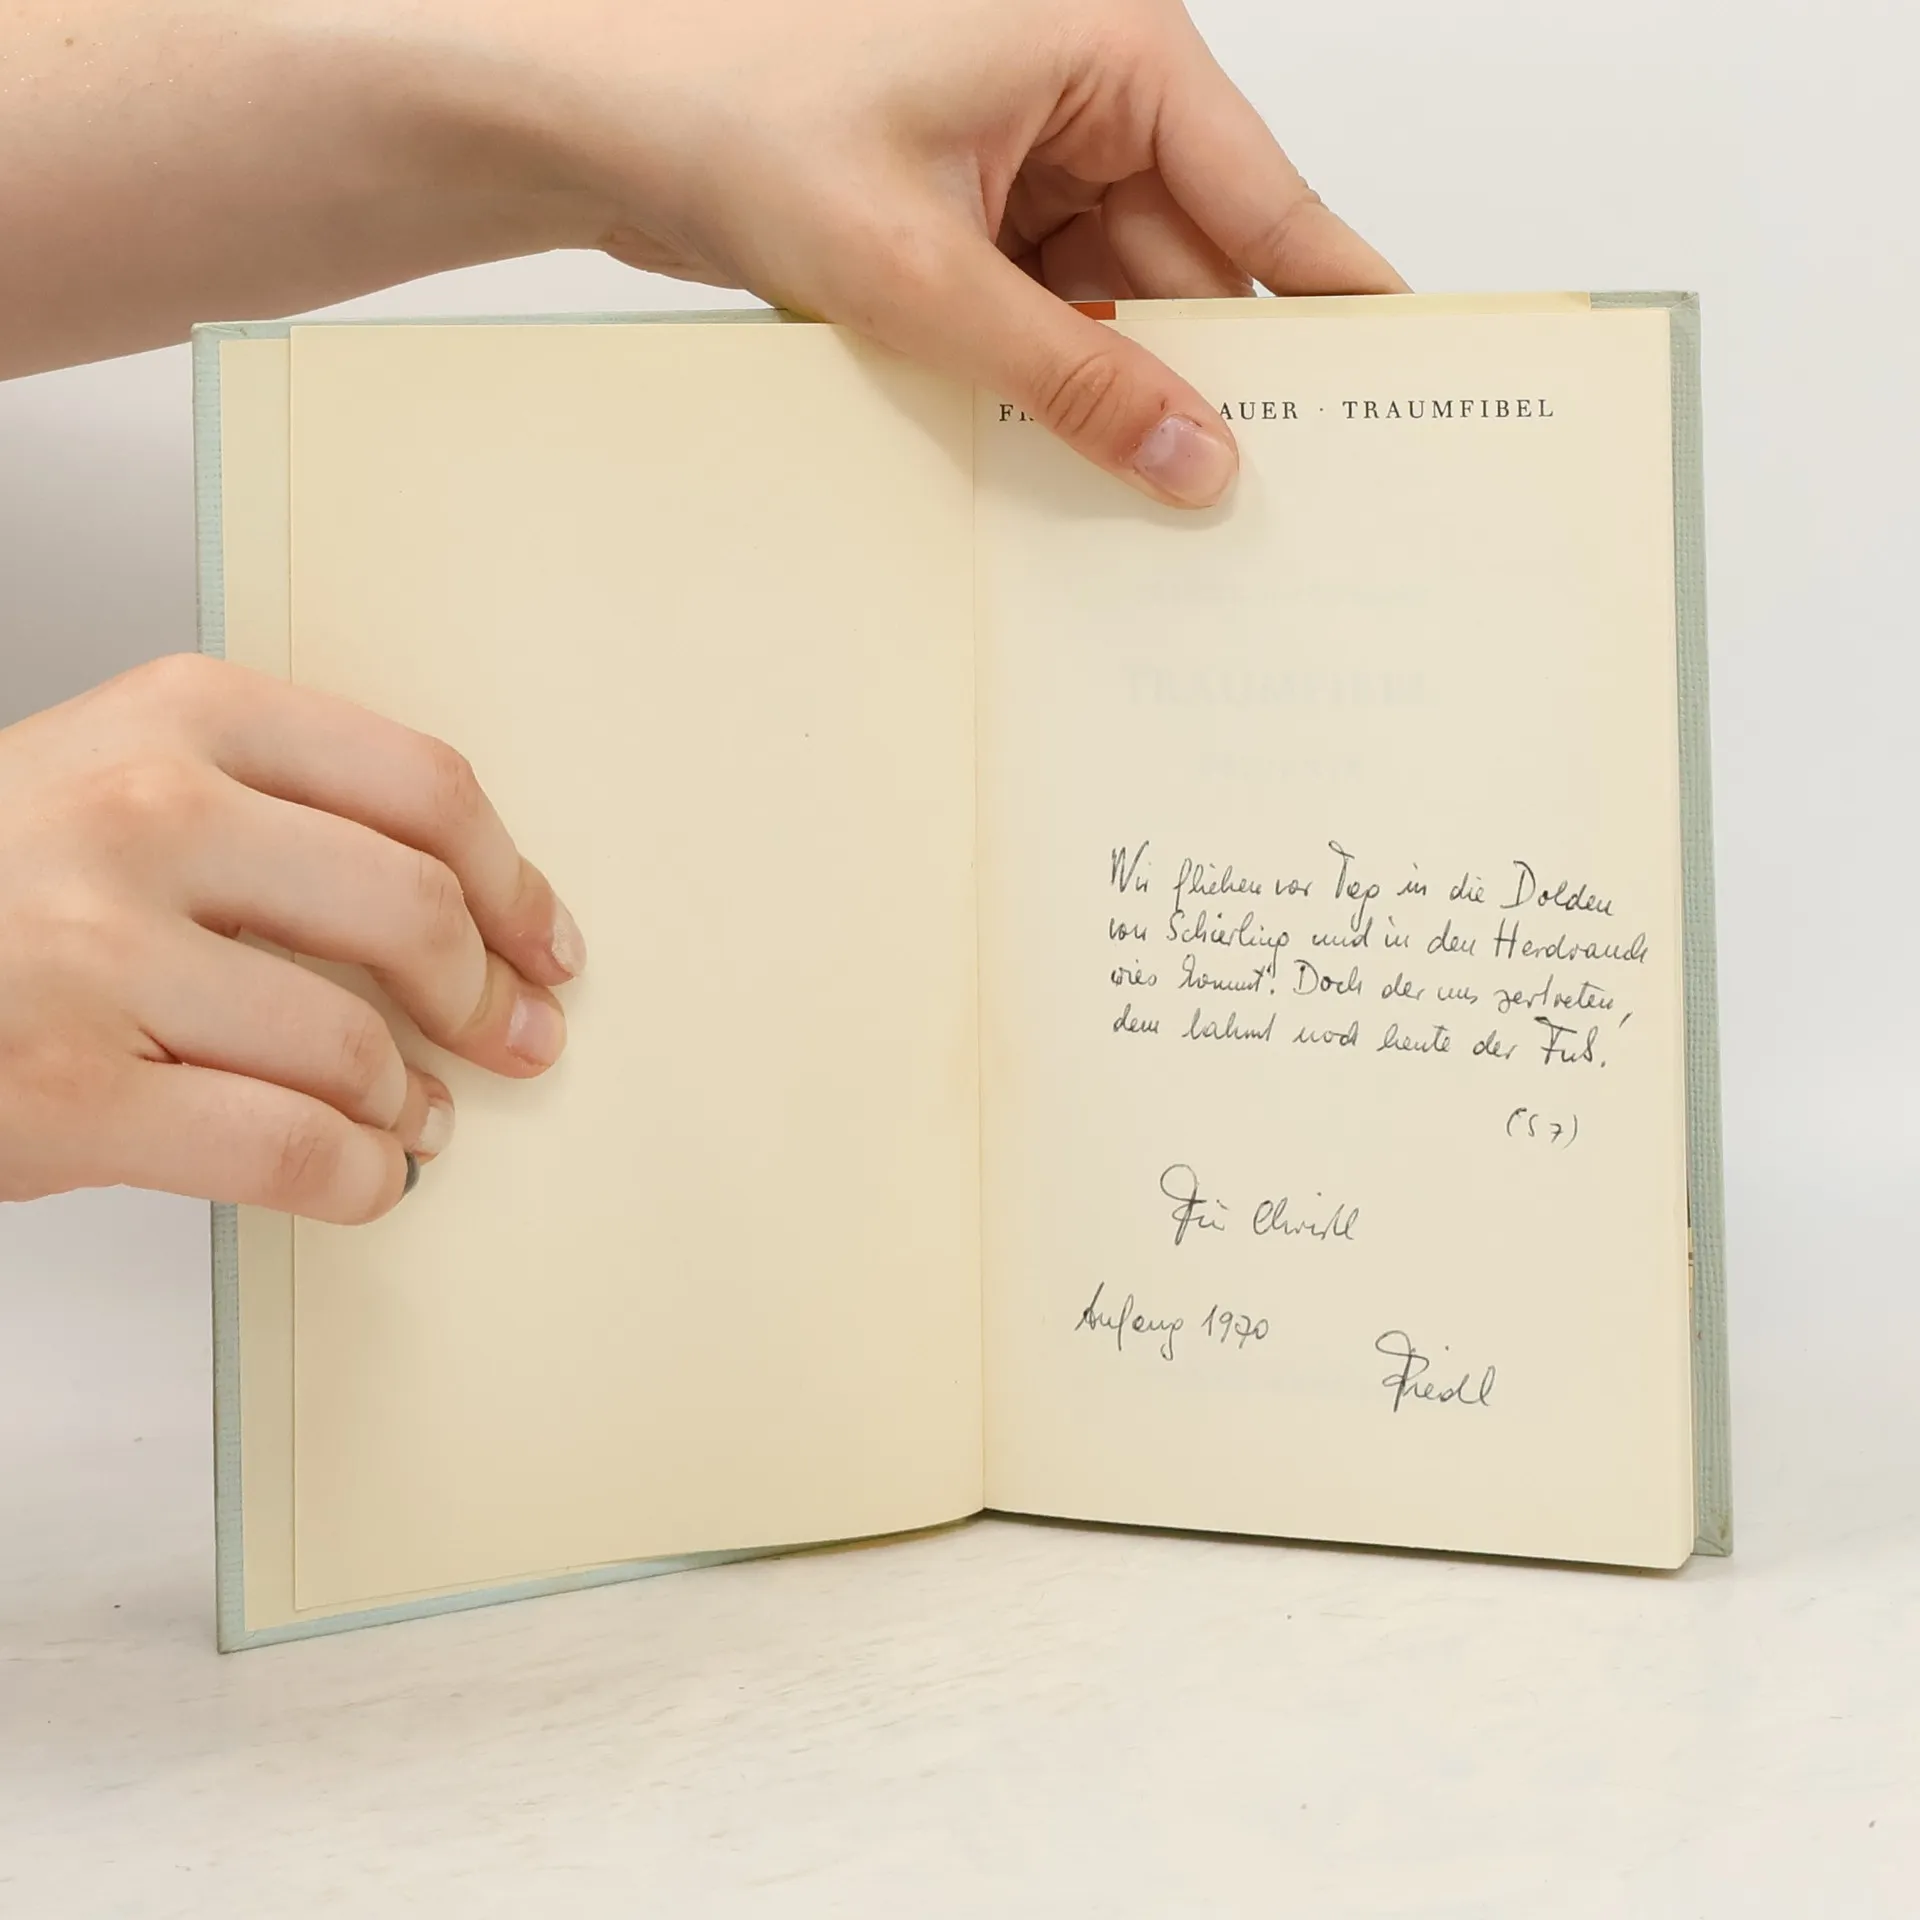 AUER · TRAUMFIBEL
Wir fliehen vor Tag in die Dolden
von Schierling und in den Herdrauch
wies kommt. Doch der uns zertreten,
dem lahmt noch heute der Fuß.
(S 7)
Für Christl
Anfang 1970
Friedl